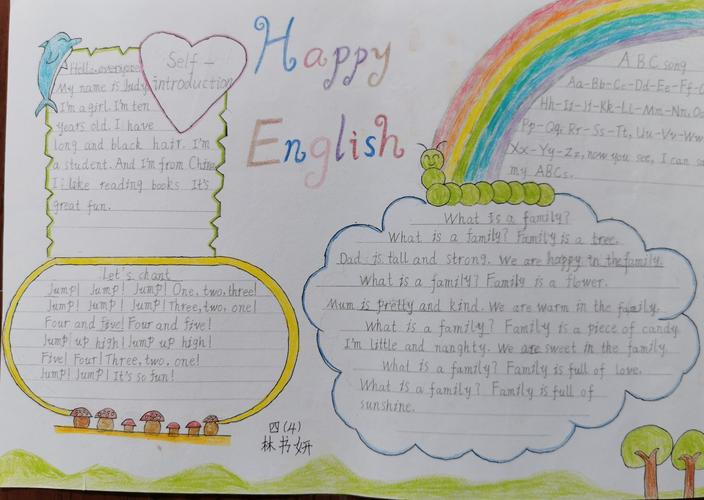 Happy
English
Self-
introduction
Hello everyone
My name is Judy
I'm a girl. I'm ten
years old. I have
long and black hair. I'm
a student. And I'm from China
I like reading books. It's
great fun.
Let's chant
Jump! Jump! Jump! One, two, three!
Jump! Jump! Jump! Three, two, one!
Four and five! Four and five!
Jump up high! Jump up high!
Five! Four! Three, two, one!
Jump! Jump! It's so fun!
四(4)
林书妍
ABC song
Aa-Bb-Cc-Dd-Ee-Ff-G
Hh-Ii-Jj-Kk-LL-Mm-Nn, Oo
Pp-Qq, Rr-Ss-Tt, Uu-Vv-Ww
Xx-Yy-Zz, now you see, I can sa
my ABCs.
What is a family?
What is a family? Family is a tree.
Dad is tall and strong. We are happy in the family.
What is a family? Family is a flower.
Mum is pretty and kind. We are warm in the family.
What is a family? Family is a piece of candy
I'm little and nanghty. We are sweet in the family.
What is a family? Family is full of love.
What is a family? Family is full of
sunshine.